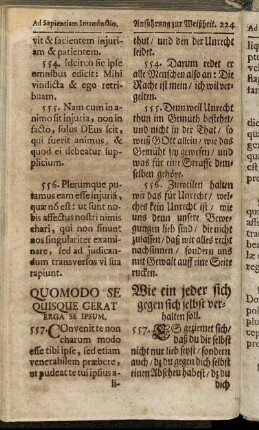 Ad Sapientiam Introductio.
vit & facientem injuri-
am & patientem.
554. Idcirco se ipse
omnibus edicit: Mihi
vindicta & ego retri-
buam.
555. Nam cum in a-
nimo sit injuria, non in
facto, solus DEus scit,
qui fuerit animus, &
quod ei debeatur sup-
plicium.
556. Plerumque pu-
tamus eam esse injuris,
quæ nõ est: ut sunt no-
bis affectus nostri nimis
chari, qui non sinunt
nos singulariter exami-
nare, sed ad judican-
dum transversos vi sua
rapiunt.
QUOMODO SE
QUISQUE GERAT
ERGA SE IPSUM.
557. COnvenit te non
charum modo
esse tibi ipse, sed etiam
venerabilem præbere,
ut pudeat te tui ipsius a-
li-
Anführung zur Weißheit. 224
thut/ und den der Unrecht
leidet.
554. Darum redet er
alle Menschen also an: Die
Rache ist mein/ ich wil ver-
gelten.
555. Denn weil Unrecht
thun im Gemüth bestehet/
und nicht in der That/ so
weiß GOtt allein/ wie das
Gemüth sey gewesen/ und
was für eine Straffe dem-
selben gehöre.
556. Zuweilen halten
wir das für Unrecht/ wel-
ches kein Unrecht ist/ wie
uns denn unsere Bewe-
gungen lieb sind/ die nicht
zulassen/ daß wir alles recht
nachsinnen/ sondern uns
mit Gewalt auff eine Seite
rucken.
Wie ein jeder sich
gegen sich selbst ver-
halten soll.
557. ES geziemet sich/
daß du dir selbst
nicht nur lieb seyst/ sondern
auch/ daß du gegen dich selbst
einen Abscheu habest/ daß du
dich